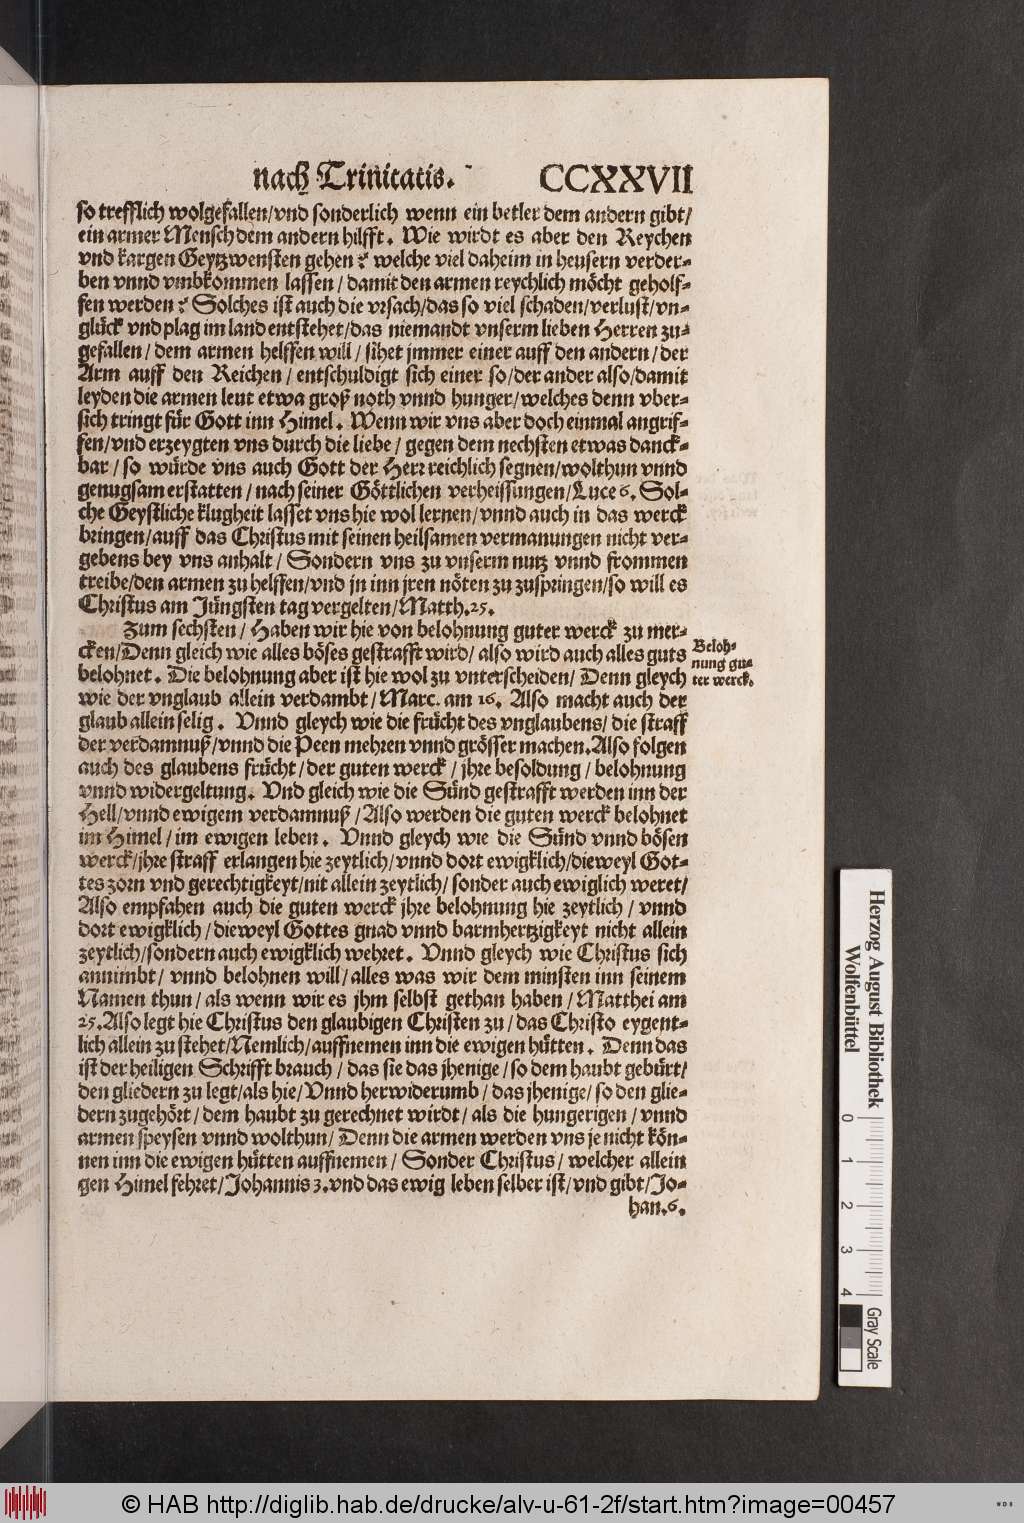 nach Trinitatis. CCXXVII
so trefflich wolgefallen/vnd sonderlich wenn ein betler dem andern gibt/
ein armer Mensch dem andern hilfft. Wie wirdt es aber den Reychen
vnd kargen Geytzwensten gehen? welche viel daheim in heusern verder-
ben vnnd vmbkommen lassen/damit den armen reychlich möcht geholf-
fen werden? Solches ist auch die vrsach/das so viel schaden/verlust/vn-
glück vnd plag im land entstehet/das niemandt vnserm lieben Herren zu-
gefallen/dem armen helffen will/sihet jmmer einer auff den andern/der
Arm auff den Reichen/entschuldigt sich einer so/der ander also/damit
leyden die armen leut etwa groß noth vnnd hunger/welches denn vber-
sich tringt für Gott inn Himel. Wenn wir vns aber doch einmal angrif-
fen/vnd erzeygten vns durch die liebe/gegen dem nechsten etwas danck-
bar/so würde vns auch Gott der Herr reichlich segnen/wolthun vnnd
genugsam erstatten/nach seiner Göttlichen verheissungen/Luce 6. Sol-
che Geystliche klugheit lasset vns hie wol lernen/vnnd auch in das werck
bringen/auff das Christus mit seinen heilsamen vermanungen nicht ver-
gebens bey vns anhalt/Sondern vns zu vnserm nutz vnnd frommen
treibe/den armen zu helffen/vnd jn inn jren nöten zu zuspringen/so will es
Christus am Jüngsten tag vergelten/Matth.25.
Zum sechsten/Haben wir hie von belohnung guter werck zu mer-
cken/Denn gleich wie alles böses gestrafft wird/also wird auch alles guts
belohnet. Die belohnung aber ist hie wol zu vnterscheiden/Denn gleych
wie der vnglaub allein verdambt/Marc. am 16. Also macht auch der
glaub allein selig. Vnnd gleych wie die frücht des vnglaubens/die straff
der verdamnuß/vnnd die Peen mehren vnnd grösser machen.Also folgen
auch des glaubens frücht/der guten werck/jhre besoldung/belohnung
vnnd widergeltung. Vnd gleich wie die Sünd gestrafft werden inn der
Hell/vnnd ewigem verdamnuß/Also werden die guten werck belohnet
im Himel/im ewigen leben. Vnnd gleych wie die Sünd vnnd bösen
werck/jhre straff erlangen hie zeytlich/vnnd dort ewigklich/dieweyl Got-
tes zorn vnd gerechtigkeyt/nit allein zeytlich/sonder auch ewiglich weret/
Also empfahen auch die guten werck jhre belohnung hie zeytlich/vnnd
dort ewigklich/dieweyl Gottes gnad vnnd barmhertzigkeyt nicht allein
zeytlich/sondern auch ewigklich wehret. Vnnd gleych wie Christus sich
annimbt/vnnd belohnen will/alles was wir dem minsten inn seinem
Namen thun/als wenn wir es jhm selbst gethan haben/Matthei am
25.Also legt hie Christus den glaubigen Christen zu/das Christo eygent-
lich allein zu stehet/Nemlich/auffnemen inn die ewigen hütten. Denn das
ist der heiligen Schrifft brauch/das sie das jhenige/so dem haubt gebürt/
den gliedern zu legt/als hie/Vnnd herwiderumb/das jhenige/so den glie-
dern zugehört/dem haubt zu gerechnet wirdt/als die hungerigen/vnnd
armen speysen vnnd wolthun/Denn die armen werden vns je nicht kön-
nen inn die ewigen hütten auffnemen/Sonder Christus/welcher allein
gen Himel fehret/Johannis 3.vnd das ewig leben selber ist/vnd gibt/Jo-
han.6.
Beloh-
nung gu-
ter werck.
Herzog August Bibliothek
Wolfenbüttel
0 1 2 3 4
Gray Scale
© HAB http://diglib.hab.de/drucke/alv-u-61-2f/start.htm?image=00457